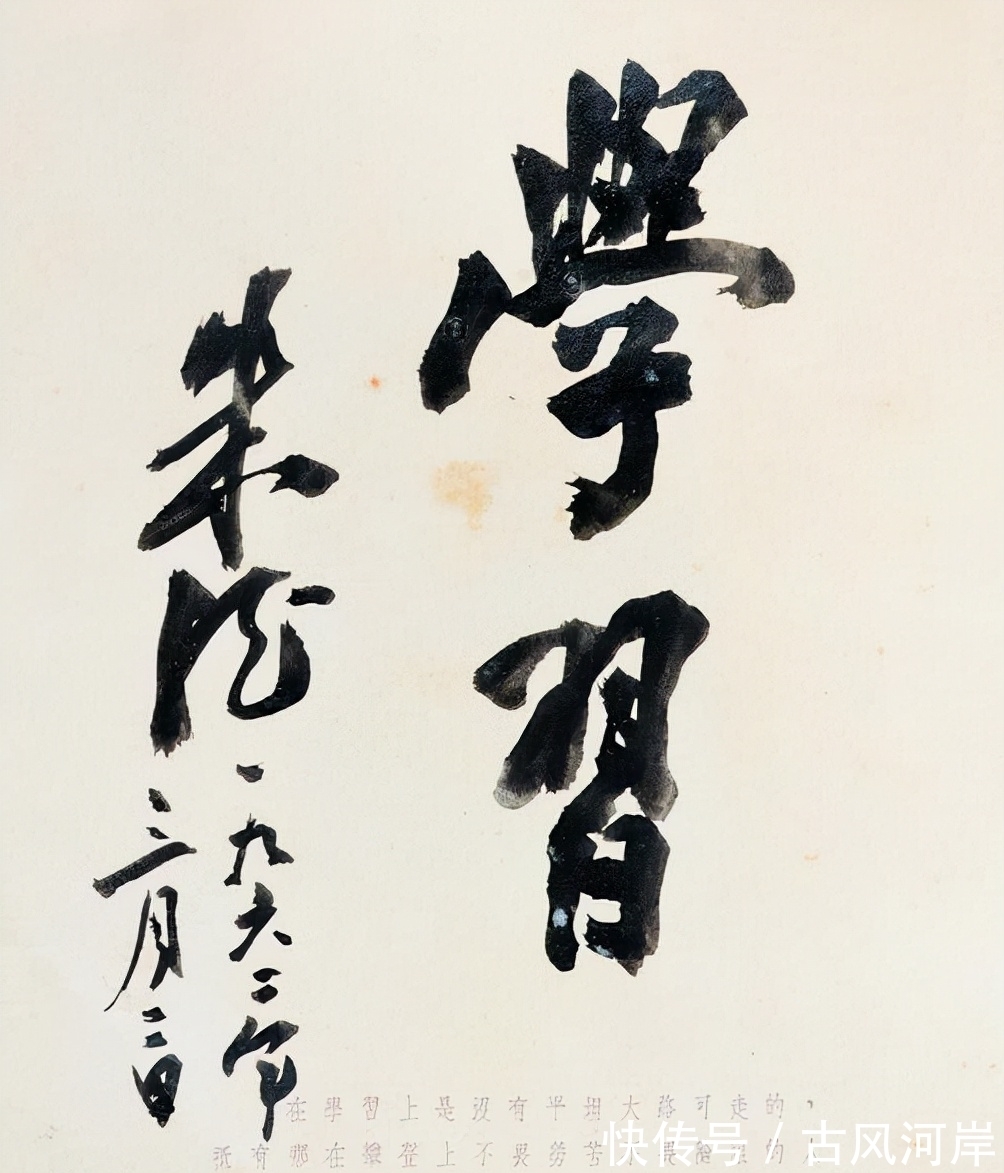 學習
朱德
一九六二年
三月三日
在學習上是没有平坦大路可走的，
祇有那在攀登上不畏勞苦
快传号 / 古风河岸